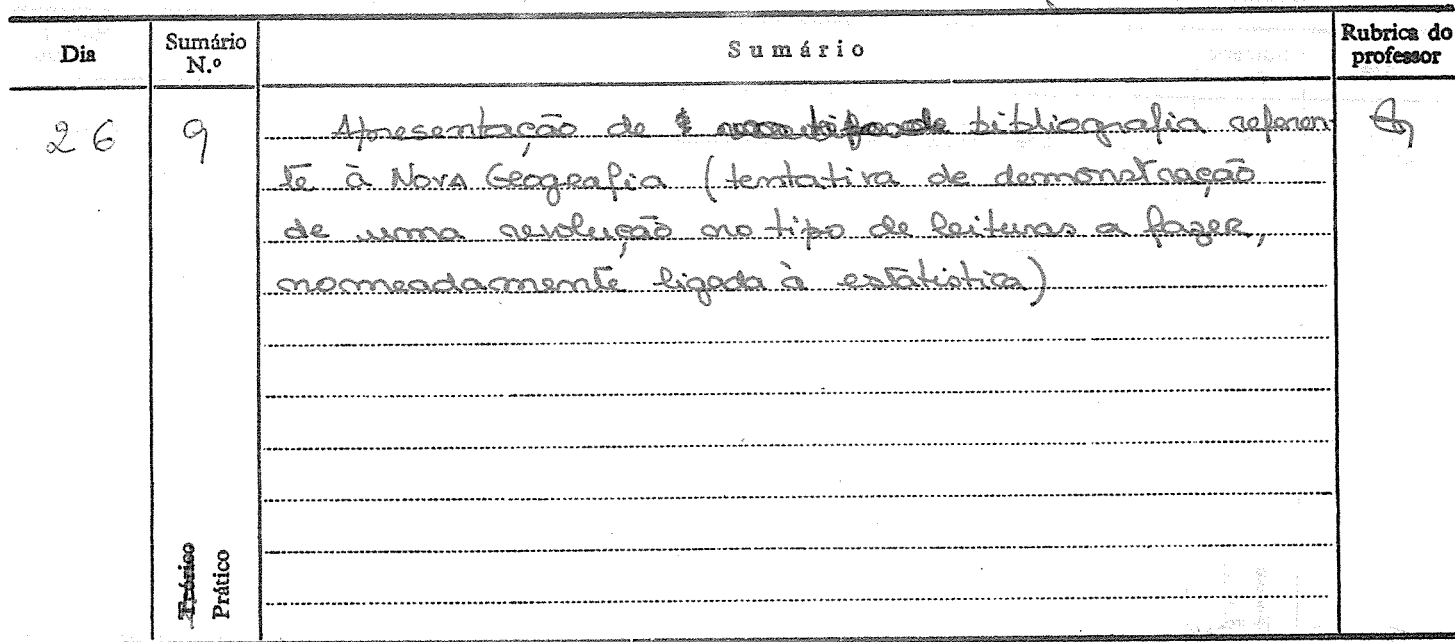 Dia Sumário N.º Sumário Rubrica do professor
26 9 Apresentação de bibliografia referen
te à Nova Geografia (tentativa de demonstração
de uma revolução no tipo de leituras a fazer,
nomeadamente ligada à estatística)
Teórico
Prático